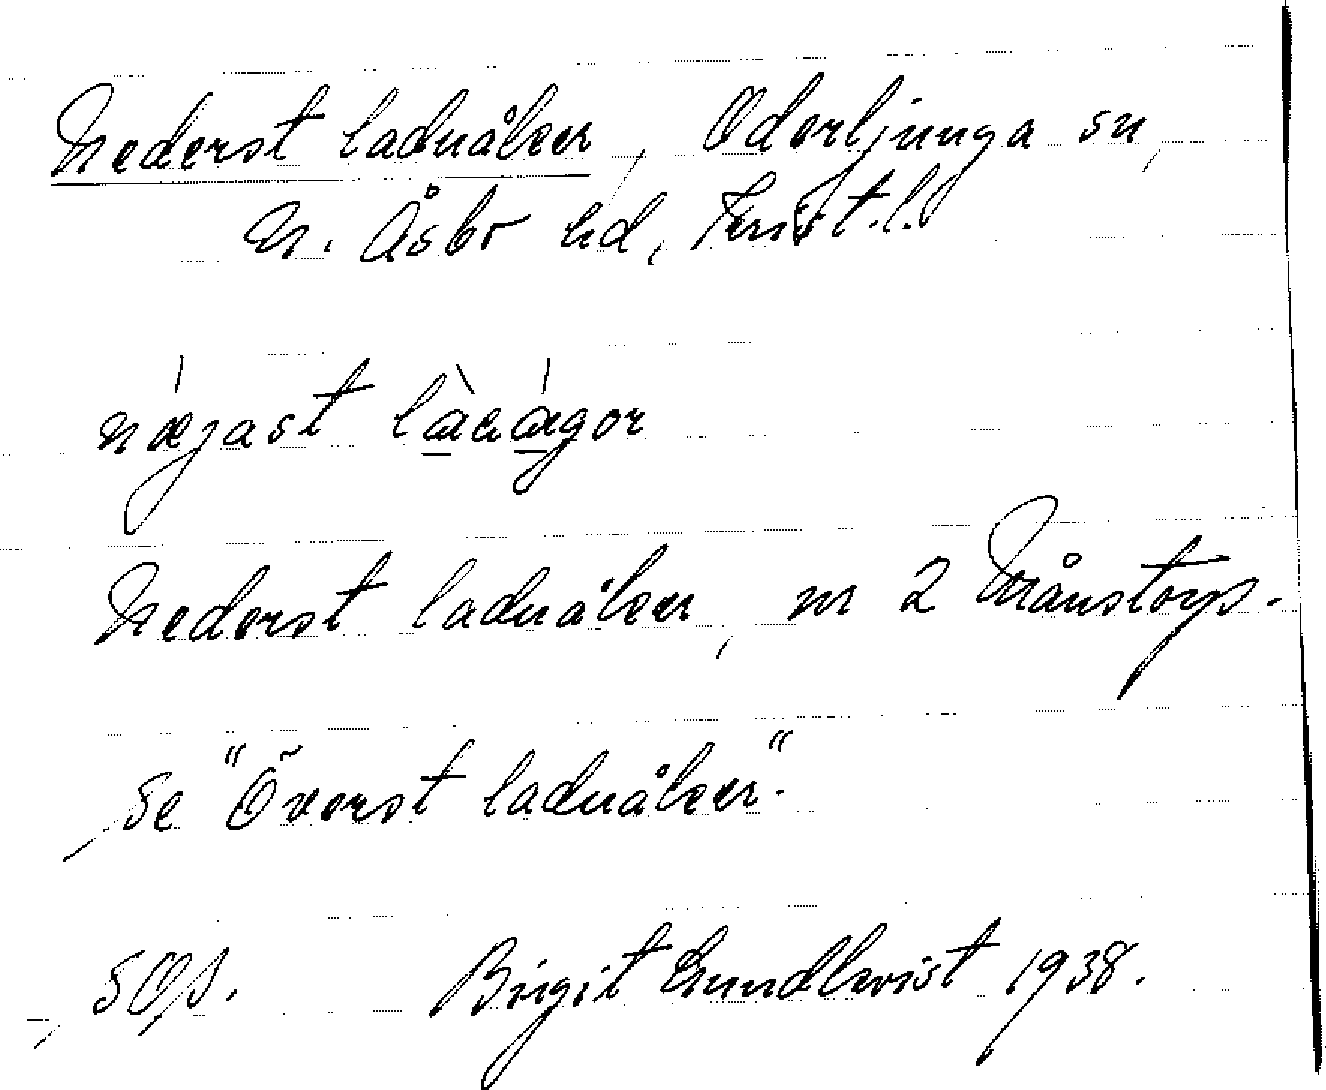 Nederst laduåker, Oderljunga sn,
N. Åsbo hd, Krist.l.
næjast làaágor
Nederst laduåker, nr 2 Månstorp.
Se "Överst laduåker".
SOJ. Birgit Lundkvist 1938.